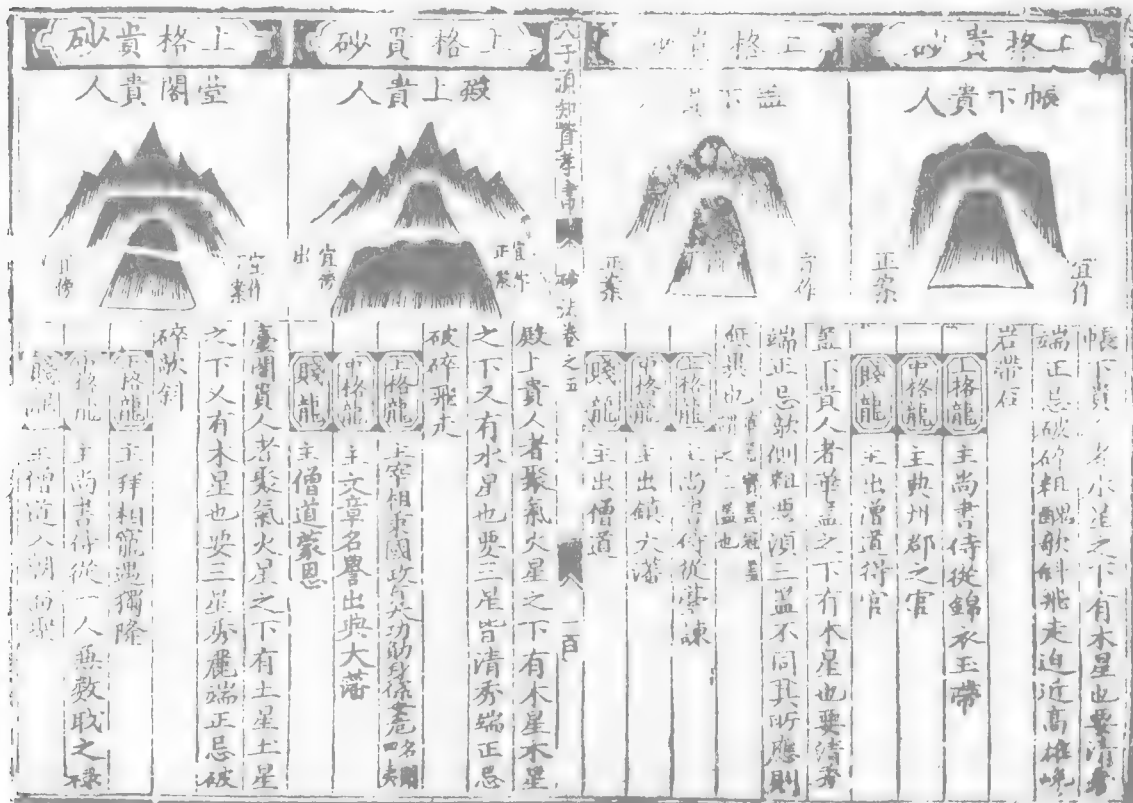 上格貴砂
帳下貴人
宜作
正案
帳下貴人者水星之下有木星也要清秀
端正忌破碎粗醜欹斜飛走迫近高雄巉
岩帶石
上格龍 主尚書侍從錦衣玉帶
中格龍 主典州郡之官
賤龍 主出僧道得官
上格貴砂
蓋下貴人
宜作
正案
蓋下貴人者華蓋之下有木星也要清秀
端正忌欹側粗惡須三蓋不同其所應則
一般也
上格龍 主尚書侍從臺諫
中格龍 主出鎮大藩
賤龍 主出僧道
人子須知資孝書
砂法卷之五
一百
上格貴砂
殿上貴人
宜作
正案
宜傍
出
殿上貴人者聚氣火星之下有木星木星
之下又有水星也要三星皆清秀端正忌
破碎飛走
上格龍 主宰相秉國政
中格龍 主文章名譽出典大藩
賤龍 主僧道蒙恩
上格貴砂
堂閣貴人
宜作
案
宜傍
臺閣貴人者聚氣火星之下有土星土星
之下又有木星也要三星秀麗端正忌破
碎欹斜
上格龍 主拜相寵遇獨隆
中格龍 主尚書侍從一人無數職之祿
賤龍 主僧道入朝